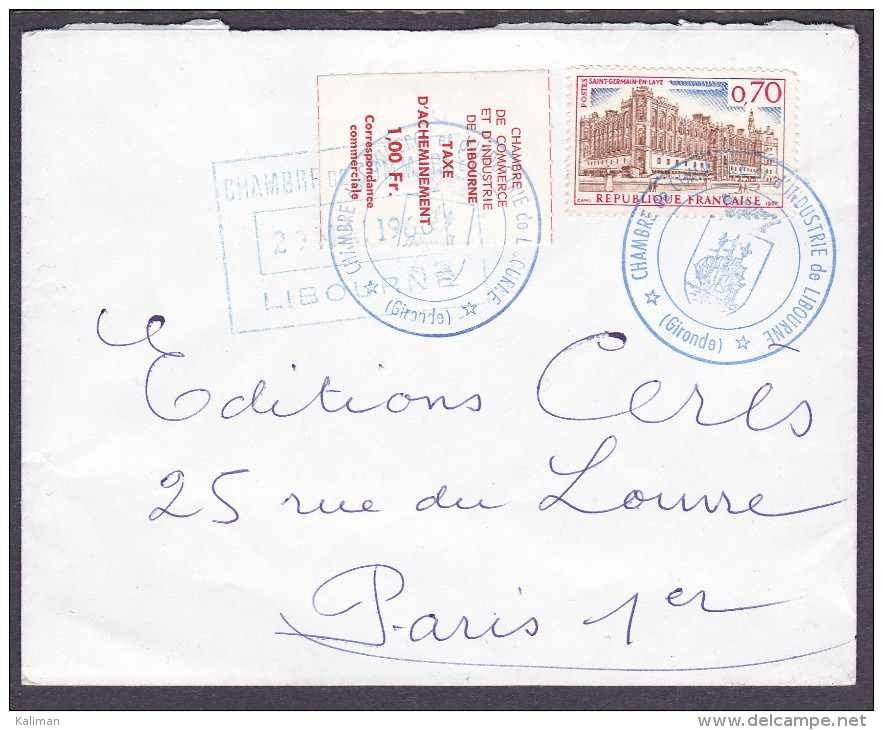 CHAMBRE
DE COMMERCE
ET D'INDUSTRIE
DE LIBOURNE
TAXE
D'ACHEMINEMENT
1,00 Fr.
Correspondance
commerciale
POSTES SAINT-GERMAIN-EN-LAYE
0,70
CAMI REPUBLIQUE FRANÇAISE 1967
CHAMBRE
29 1968
LIBOURNE
CHAMBRE de LIBOURNE
(Gironde)
CHAMBRE d'INDUSTRIE de LIBOURNE
(Gironde)
Editions Cérès
25 rue du Louvre
Paris 1er
Kaliman
www.delcampe.net